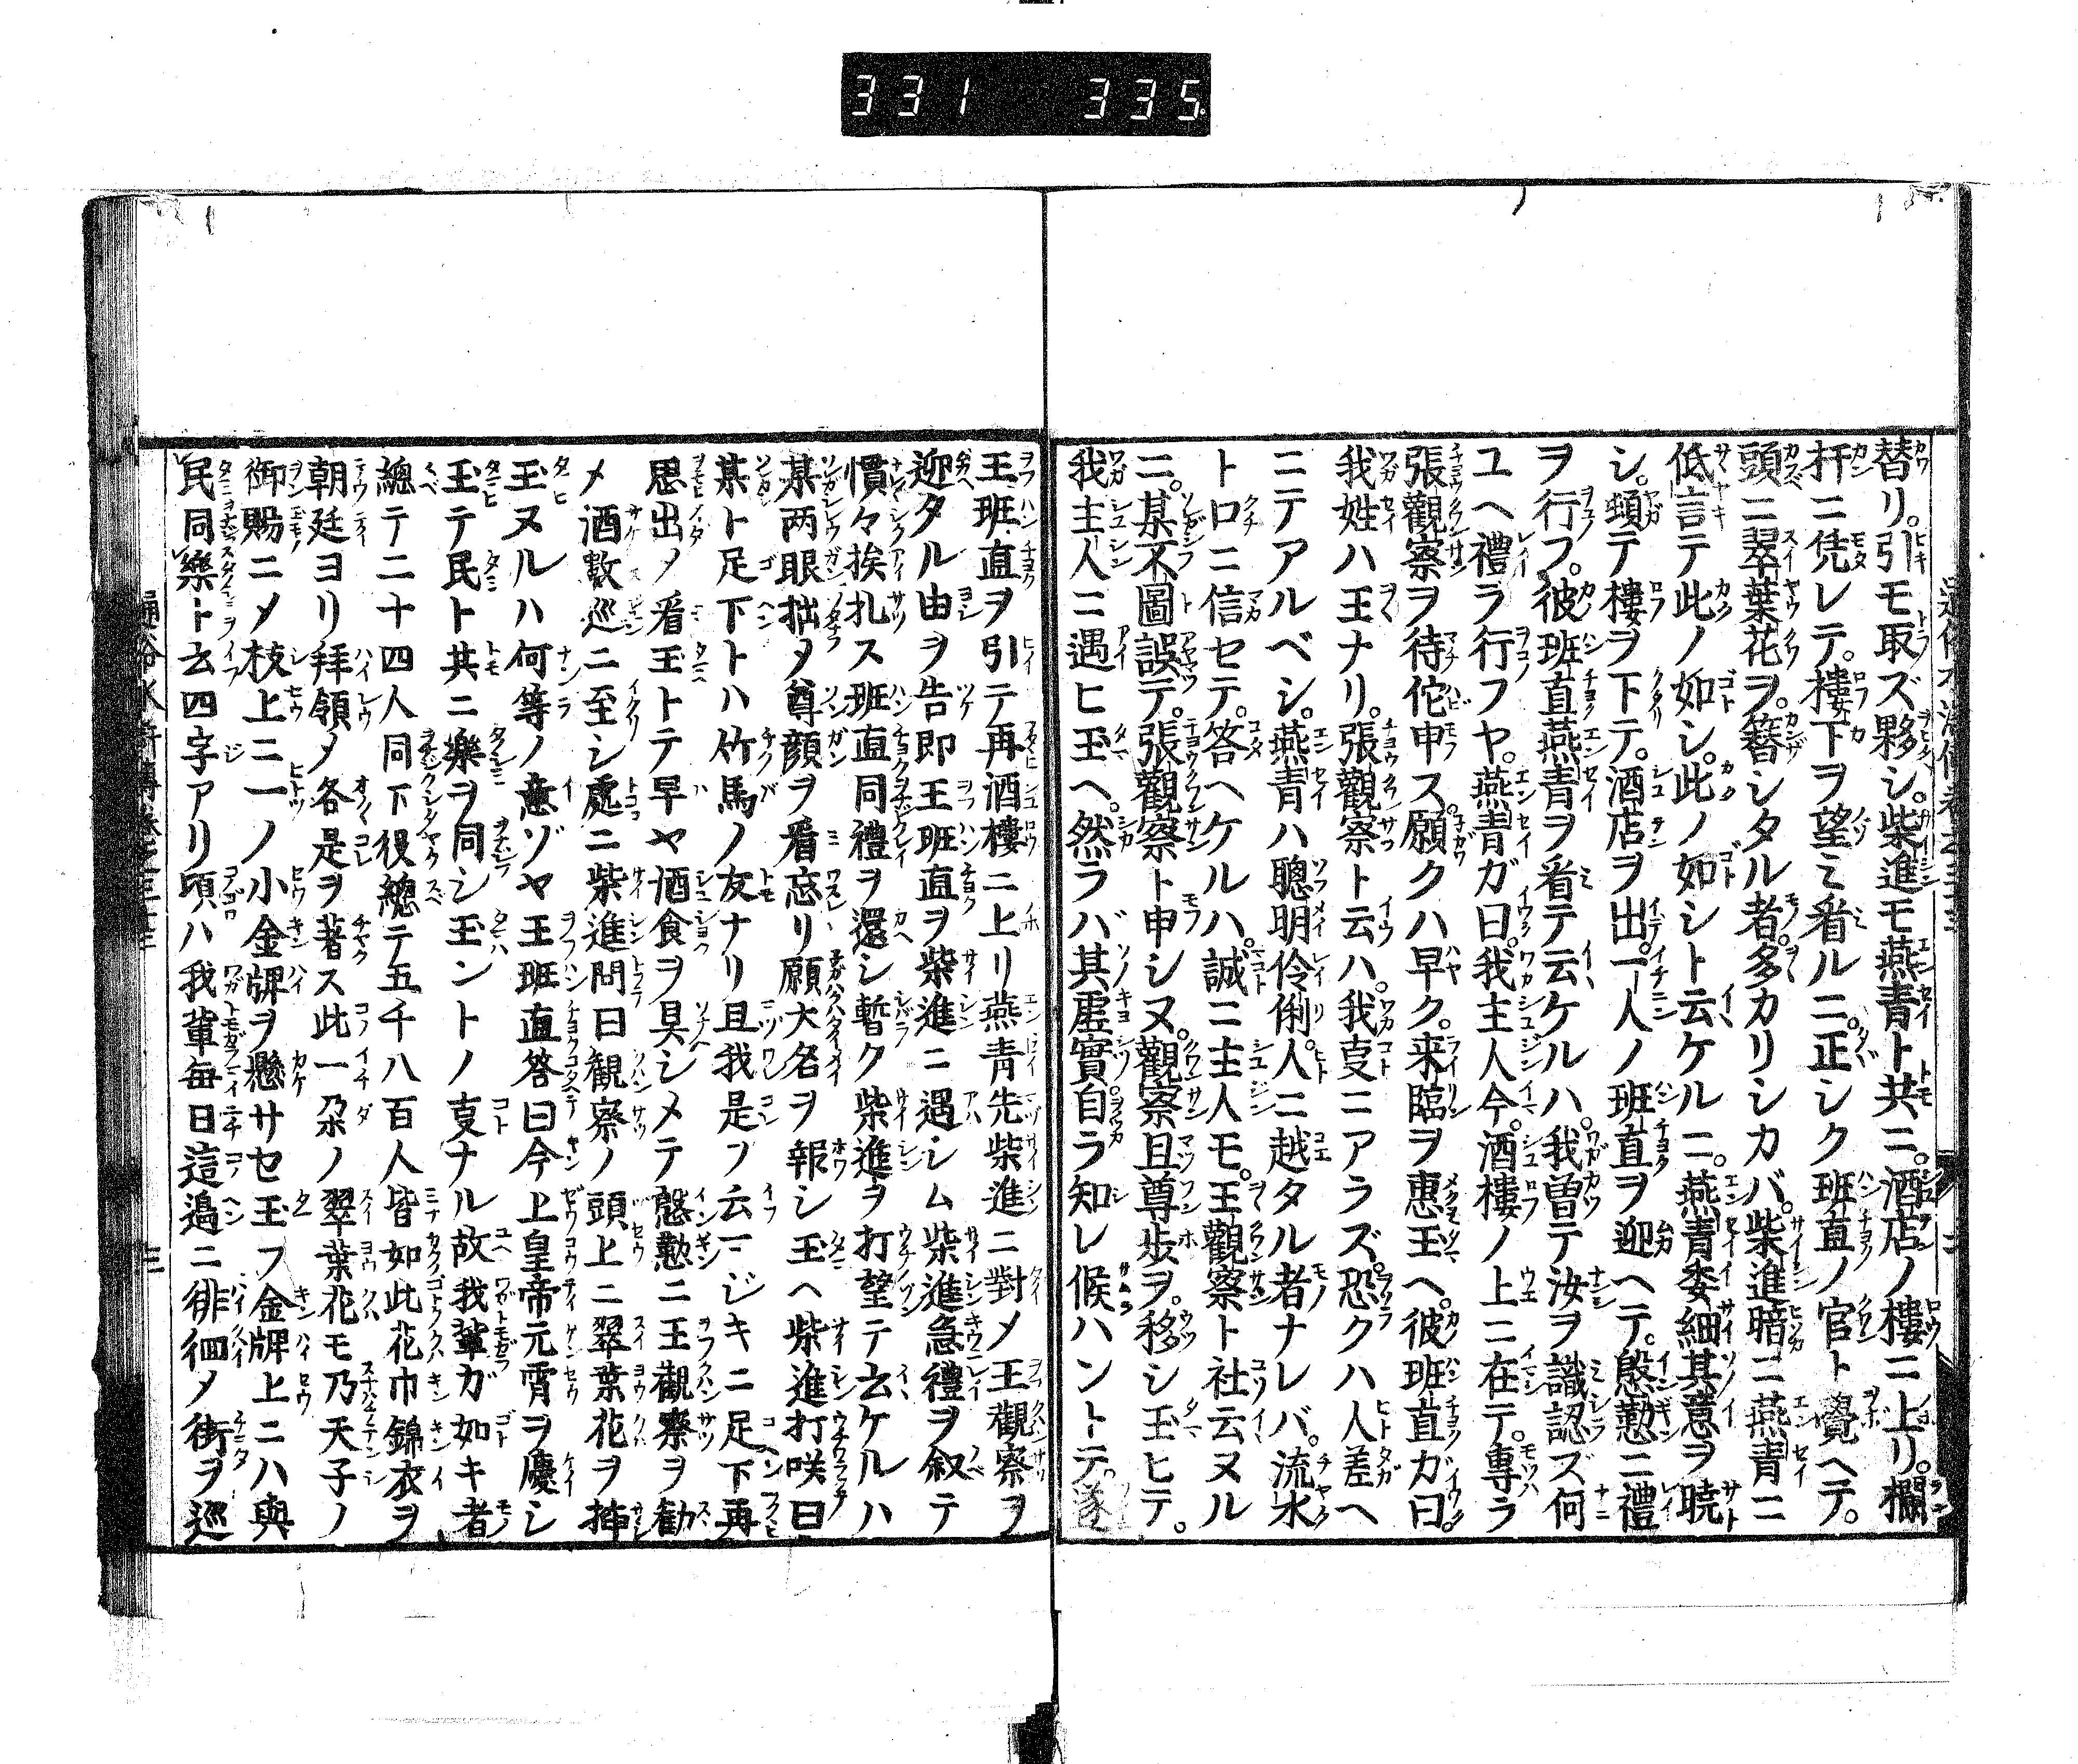 331 335
替リ。引モ取ズ夥シ。柴進モ燕青ト共ニ。酒店ノ樓ニ上リ。欄
杆ニ凭レテ。樓下ヲ望ミ看ルニ。正シク班直ノ官ト覺ヘテ。
頭ニ翠葉花ヲ。簪シタル者。多カリシカバ。柴進暗ニ燕青ニ
低言テ此ノ如シ。此ノ如シト云ケルニ。燕青委細其意ヲ曉
シ。頓テ樓ヲ下テ。酒店ヲ出。一人ノ班直ヲ迎ヘテ。慇懃ニ禮
ヲ行フ。彼班直燕青ヲ看テ云ケルハ。我曽テ汝ヲ識認ズ何
ユヘ禮ヲ行フヤ。燕青ガ曰。我主人今。酒樓ノ上ニ在テ。專ラ
張觀察ヲ待佗申ス。願クハ早ク。来臨ヲ惠玉ヘ。彼班直ガ曰。
我姓ハ王ナリ。張觀察ト云ハ。我叓ニアラズ。恐クハ人差ヘ
ニテアルベシ。燕青ハ聰明伶俐。人ニ越タル者ナレバ。流水
ト口ニ信セテ。答ヘケルハ。誠ニ主人モ。王觀察ト社云ヌル
ニ。某不圖誤テ。張觀察ト申シヌ。觀察且尊歩ヲ。移シ玉ヒテ。
我主人ニ遇ヒ玉ヘ。然ラバ其虚實自ラ知レ候ハントテ。遂
王班直ヲ引テ再酒樓ニ上リ燕青先柴進ニ對メ王觀察ヲ
迎タル由ヲ告即王班直ヲ柴進ニ遇シム柴進急禮ヲ叙テ
慣々挨扎ス班直同禮ヲ還シ暫ク柴進ヲ打望テ云ケルハ
某两眼拙メ尊顔ヲ看忘リ願大名ヲ報シ玉ヘ柴進打咲曰
某ト足下トハ竹馬ノ友ナリ且我是ヲ云マジキニ足下再
思出メ看玉トテ早ヤ酒食ヲ具シメテ慇懃ニ王觀察ヲ勸
メ酒數巡ニ至シ處ニ柴進問曰観察ノ頭上ニ翠葉花ヲ挿
玉ヌルハ何等ノ意ゾヤ王班直答曰今上皇帝元霄ヲ慶シ
玉テ民ト其ニ樂ヲ同シ玉ントノ叓ナル故我輩ガ如キ者
總テ二十四人同下役總テ五千八百人皆如此花巾錦衣ヲ
朝廷ヨリ拜領メ各是ヲ著ス此一朶ノ翠葉花モ乃天子ノ
御賜ニメ枝上ニ一ノ小金牌ヲ懸サセ玉フ金牌上ニハ與
民同樂ト云四字アリ頃ハ我輩每日這邉ニ徘徊メ街ヲ巡
三